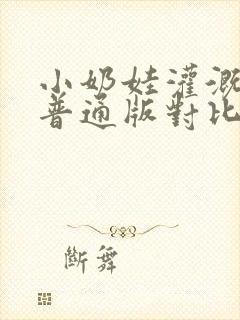 小奶娃灌溉
普通版對比
斷舞